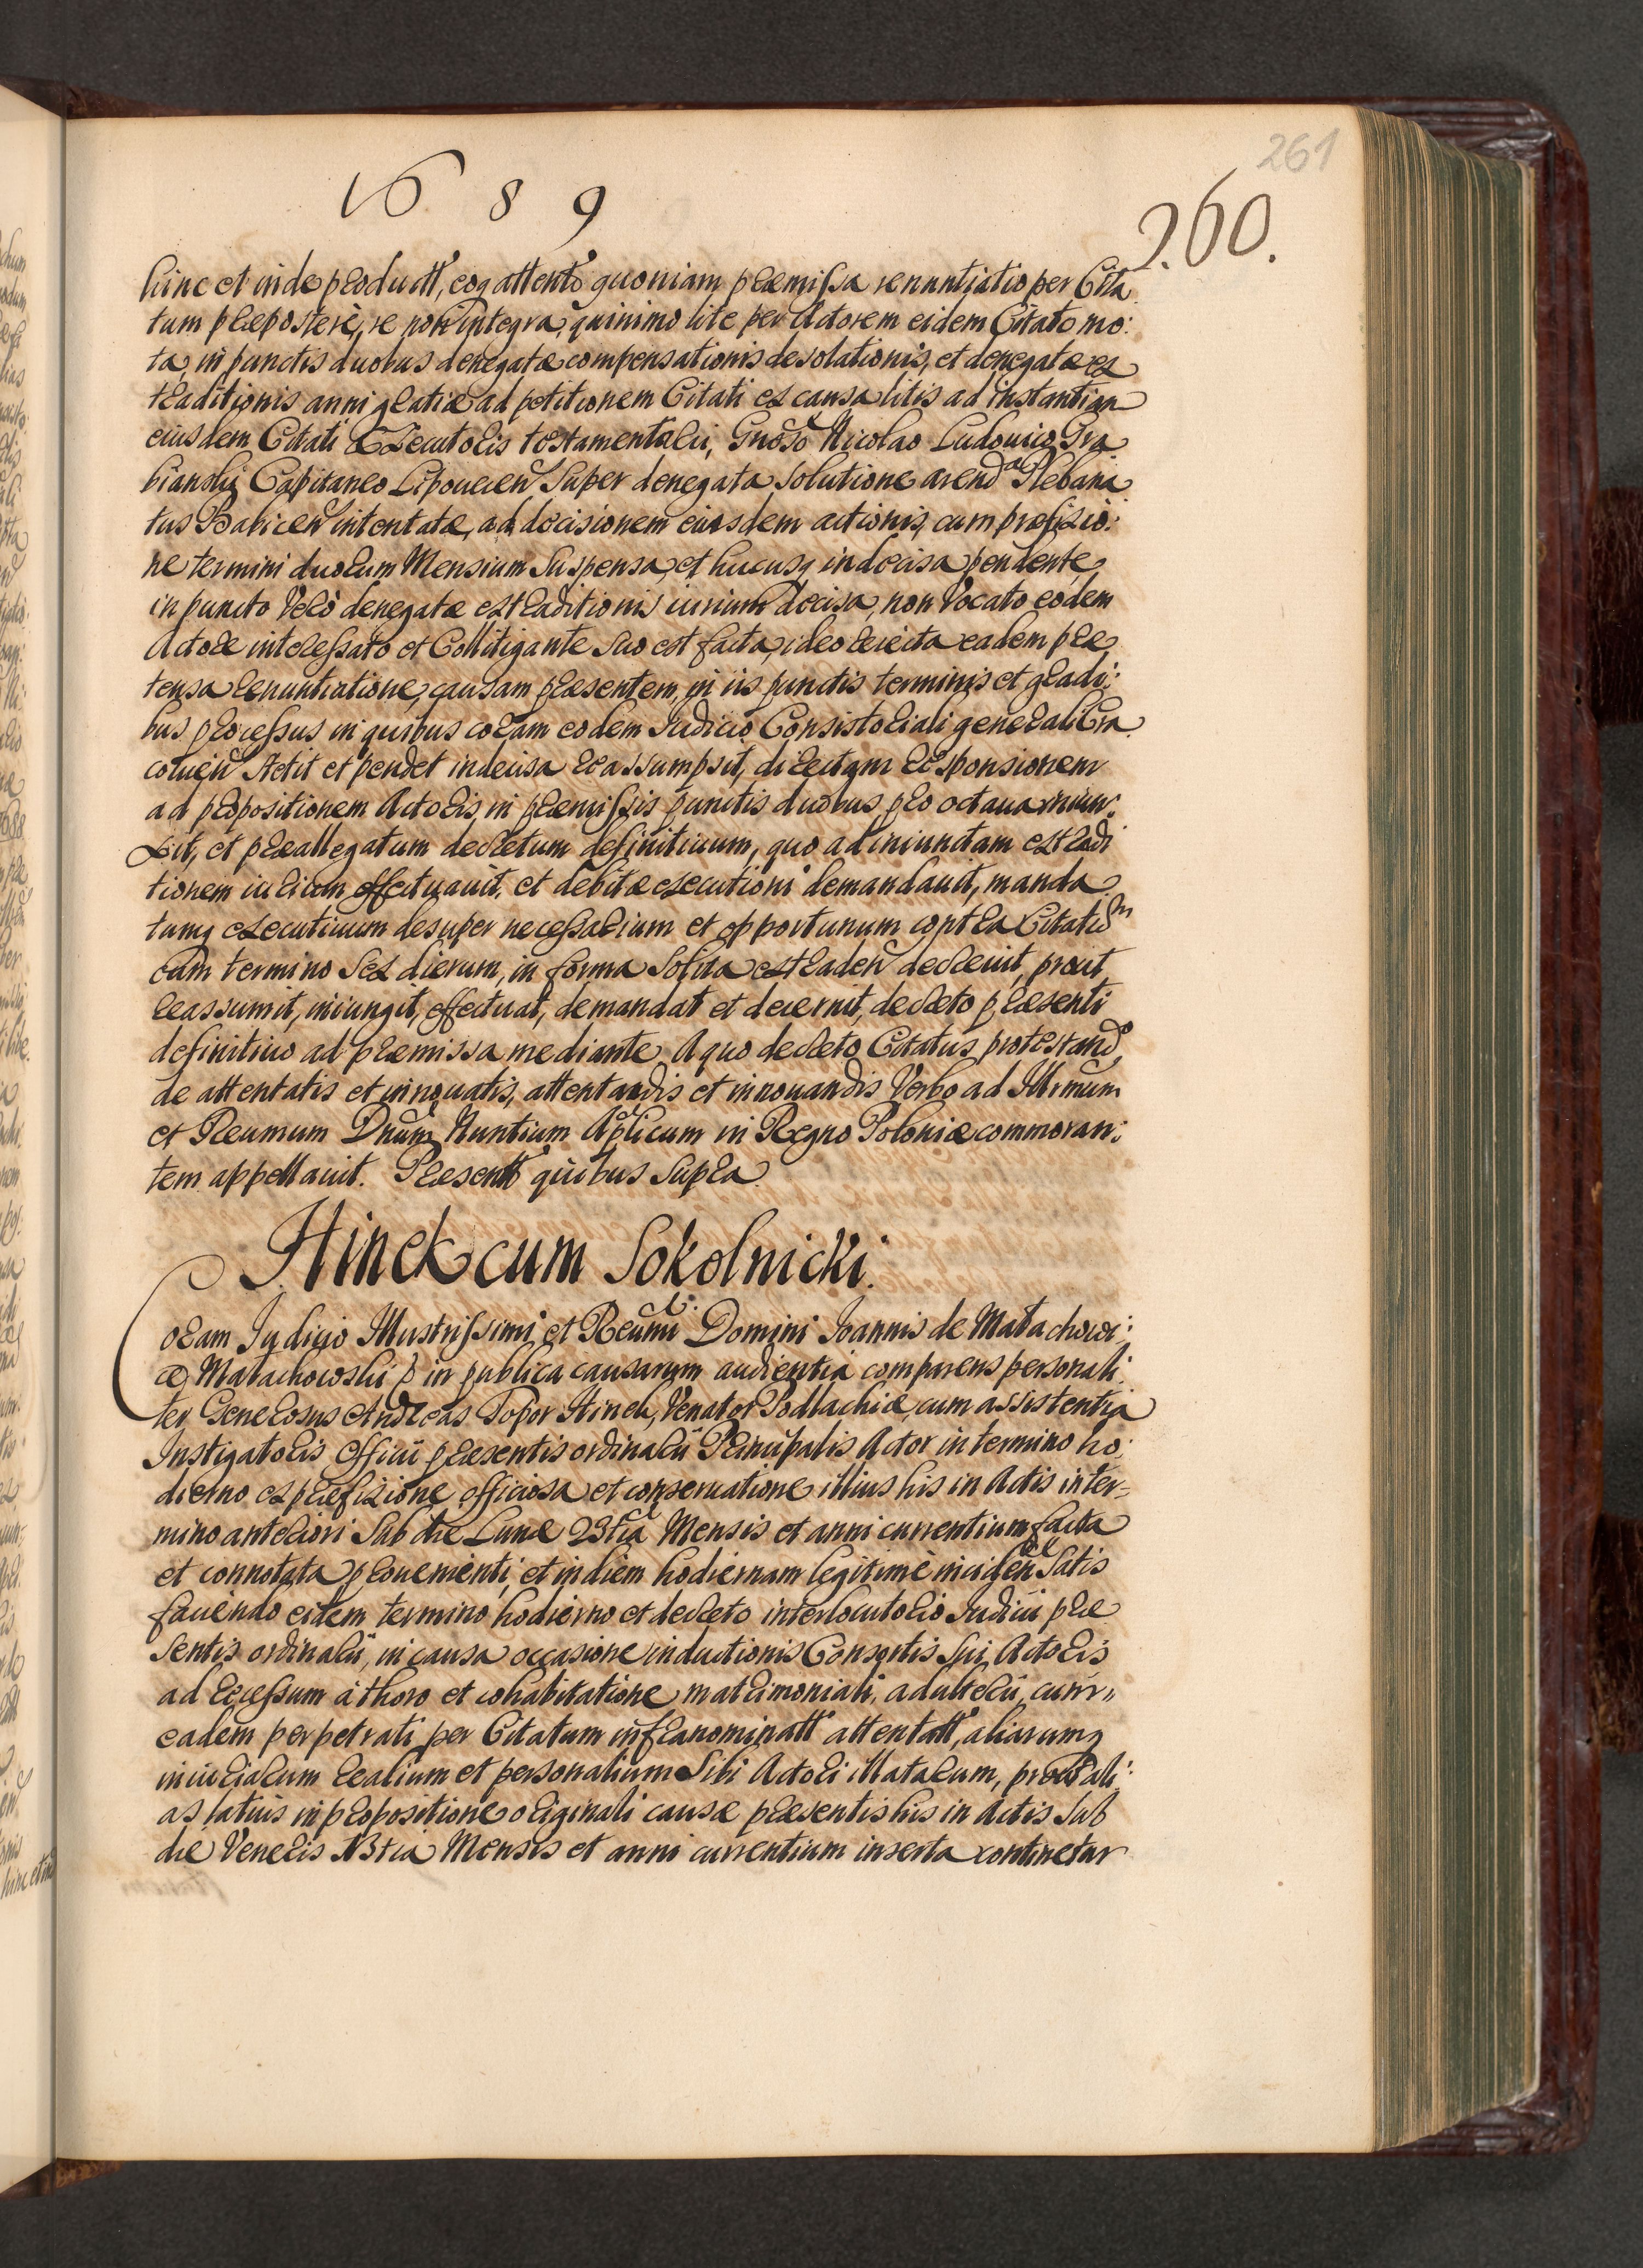 261
1689
260.
hinc et inde productt, eoq attento quoniam præmissa renuntiatio per Cita
tum præposterè, re non integra, quinimo lite per Actorem eidem Citato mo:
ta, in punctis duobus denegatæ compensationis desolationis, et denegatæ ex
traditionis anni gratiæ ad petitionem Citati ex causa litis ad instantiam
eiusdem Citati Executoris testamentarii, Gnoso Nicolao Ludovico Gra
bianski Capitaneo Lipoviecen Super denegata Solutione arend Plebana
tus Babicen intentatæ, ad decisionem eiusdem actionis, cum præfixio:
ne termini duorum Mensium Suspensa, et hucusq indecisa pendente,
in puncto Verò denegatæ extraditionis iurium decisa, non Vocato eodem
Actore interessato et Collitigante Suo est facta, ideo reiecta eadem præ
tensa renuntiatione, causam præsentem, in iis punctis terminis et gradi:
bus processus in quibus coram eodem Iudicio Consistoriali generali Cra
covien stetit et pendet indecisa reassumpsit, directam responsionem
ad propositionem Actoris, in præmissis punctis duobus, pro octava iniun:
xit, et præallegatum decretum definitivum, quo ad iniunctam extradi
tionem iurium effectuavit, et debitæ executioni demandavit, manda
tumq executivum desuper necessarium et opportunum contra Citatum
cum termino Sex dierum, in forma Solita extraden decrevit, prout
reassumit, iniungit, effectuat, demandat et decernit, decreto præsenti
definitivo ad præmissa mediante. A quo decreto Citatus protestand
de attentatis et innovatis, attentandis et innovandis Verbo ad Illrmum
et Reumum Dnum Nuntium Aplicum in Regno Poloniæ commoran:
tem appellavit. Præsentt quibus Supra.
Hinek cum Sokolnicki.
Coram Iudicio Illustrissimi et Reumi Domini Ioannis de Małachowi:
ce Małachowski in publica causarum audientia comparens personali
ter Generosus Andreas Topor Hinek, Venator Podlachiæ, cum assistentia
Instigatoris Officii præsentis ordinarii Principalis Actor in termino ho:
dierno ex præfixione officiosa et conservatione illius his in Actis in ter=
mino anteriori Sub die Lunæ 23tia Mensis et anni currentium facta
et connotata proveniente, et in diem hodiernam legitimè inciden Satis
faciendo eidem termino hodierno et decreto interlocutorio Iudicii præ
sentis ordinarii, in causa occasione inductionis Consortis Sui Actoris
ad recessum à thoro et cohabitatione matrimoniali, adulterii, cum
eadem perpetrati per Citatum infranominatt attentatt, aliarumq
iniuriarum realium et personalium Sibi Actori illatarum, prout ali:
as latius in propositione originali causæ præsentis his in Actis Sub
die Veneris 13tia Mensis et anni currentium inserta continetur